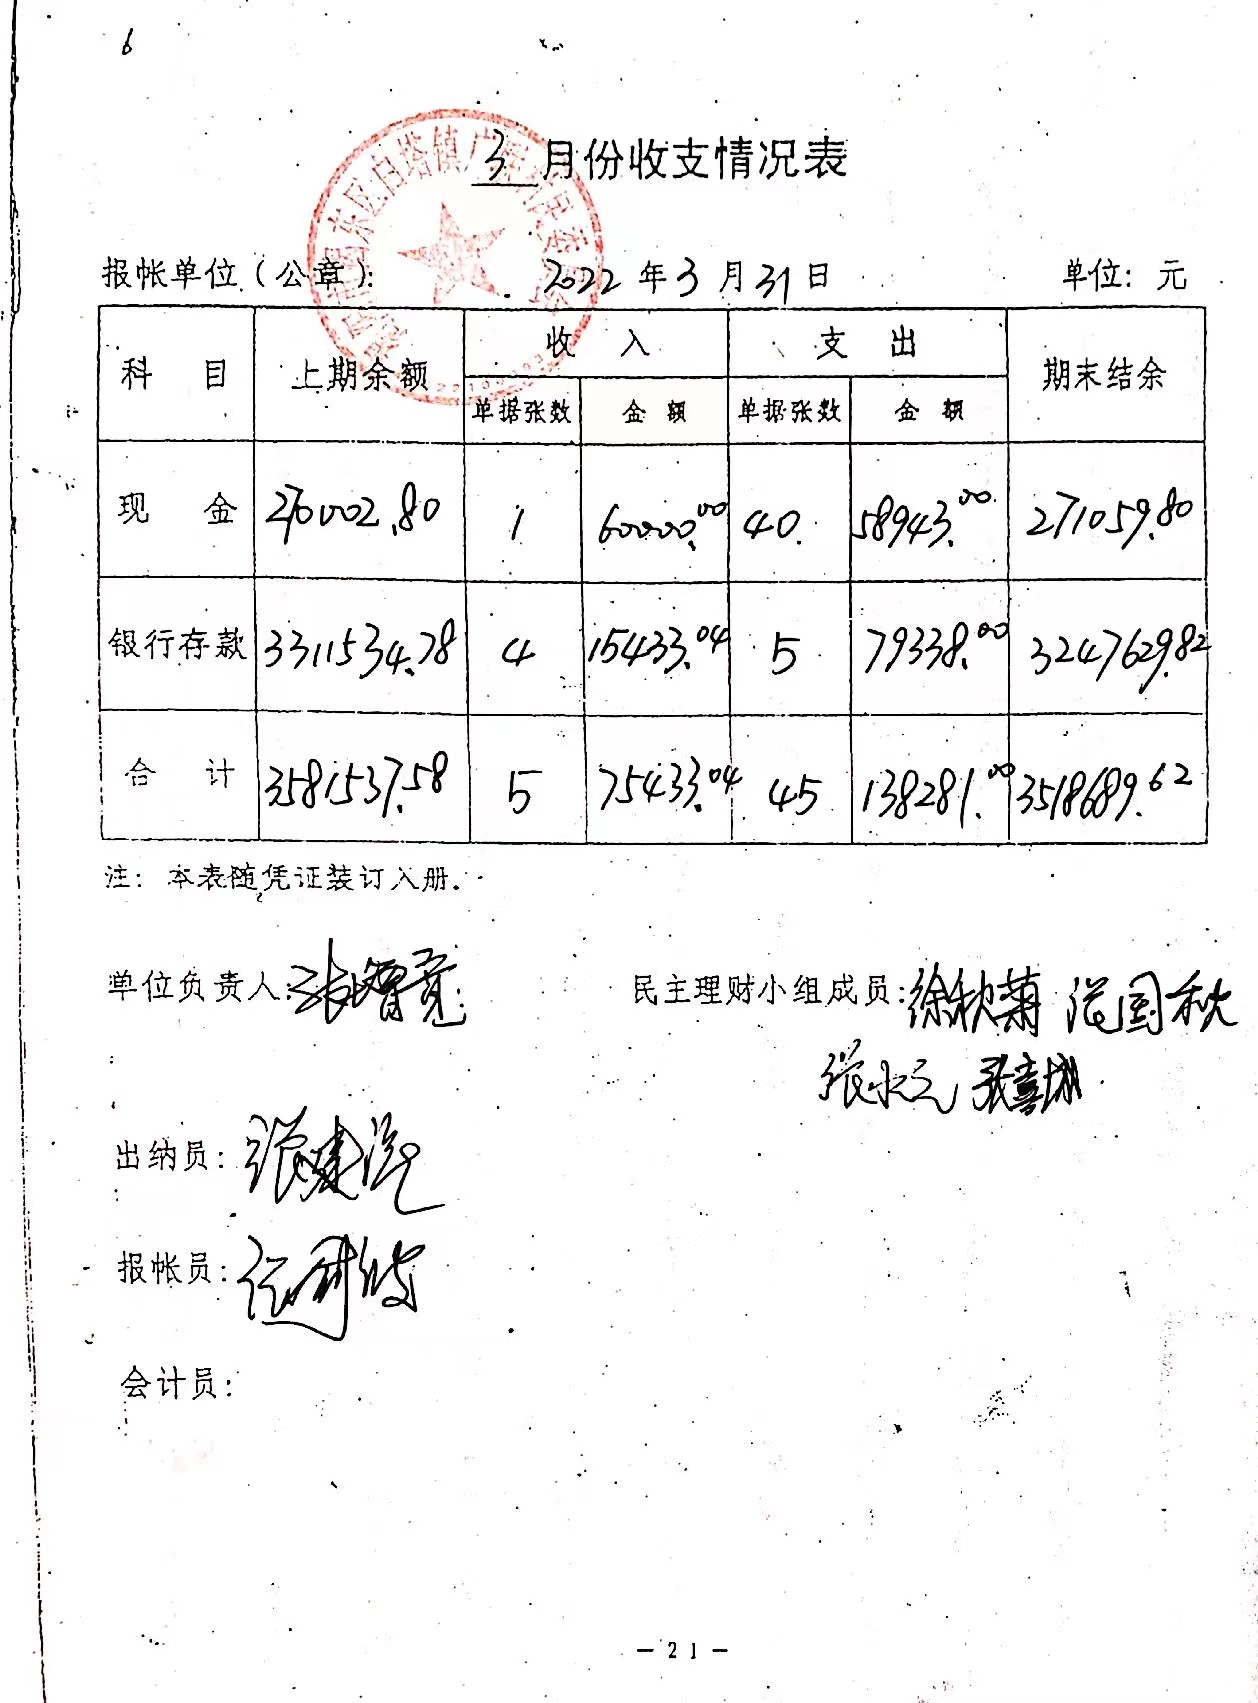 6
3 月份收支情况表
报帐单位(公章): 2022年3月31日 单位: 元
科目 上期余额 收入 支出 期末结余
单据张数 金额 单据张数 金额
现金 270002.80 1 60000.00 40 58943.00 271059.80
银行存款 3311534.78 4 15433.04 5 79338.00 3247629.82
合计 3581537.58 5 75433.04 45 138281.00 3518689.62
注: 本表随凭证装订入册.
单位负责人: 民主理财小组成员: 徐秋菊 范国秋
张水元 张喜城
出纳员: 张建
报帐员:
会计员:
— 21 —